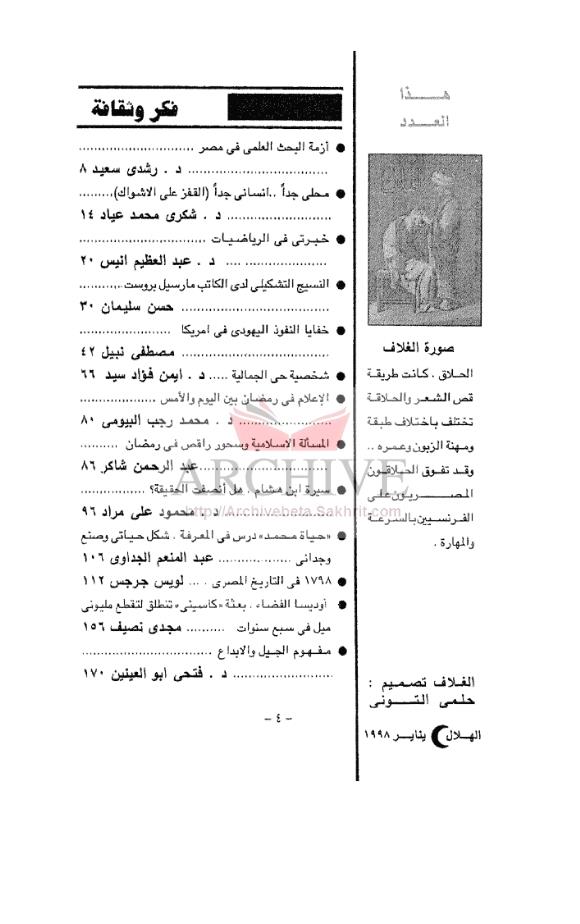 هذا
العدد
صورة الغلاف
الحلاق . كانت طريقة
قص الشعر والحلاقة
تختلف باختلاف طبقة
ومهنة الزبون وعمره ..
وقد تفوق الحلاقون
المصريون على
الفرنسيين بالسرعة
والمهارة .
الغلاف تصميم :
حلمى التونى
الهلال يناير ١٩٩٨
فكر وثقافة
● أزمة البحث العلمى فى مصر ..............................
.................................... د . رشدى سعيد ٨
● محلى جداً ..انسانى جداً (القفز على الاشواك).........
........................... د . شكرى محمد عياد ١٤
● خبرتى فى الرياضيات .................................
..................... .... د . عبد العظيم انيس ٢٠
● النسيج التشكيلى لدى الكاتب مارسيل بروست...........
...................................... حسن سليمان ٣٠
● خفايا النفوذ اليهودى فى امريكا ........................
...................................... مصطفى نبيل ٤٢
● شخصية حى الجمالية ..... د . أيمن فؤاد سيد ٦٦
● الإعلام فى رمضان بين اليوم والأمس ....................
........................ د . محمد رجب البيومى ٨٠
● المسألة الاسلامية وسحور راقص فى رمضان ..........
.................................عبد الرحمن شاكر ٨٦
● سيرة ابن هشام . هل أنصفت الحقيقة؟ ................
........................... د . محمود على مراد ٩٦
● «حياة محمد» درس فى المعرفة . شكل حياتى وصنع
وجدانى ................... عبد المنعم الجداوى ١٠٦
● ١٧٩٨ فى التاريخ المصرى . ... لويس جرجس ١١٢
● أوديسا الفضاء . بعثة «كاسينى» تنطلق لتقطع مليونى
ميل فى سبع سنوات .......... مجدى نصيف ١٥٦
● مفهوم الجيل والابداع .................................
.......................... د . فتحى ابو العينين ١٧٠
- ٤ -
ARCHIVE
http://Archivebeta.Sakhrit.com